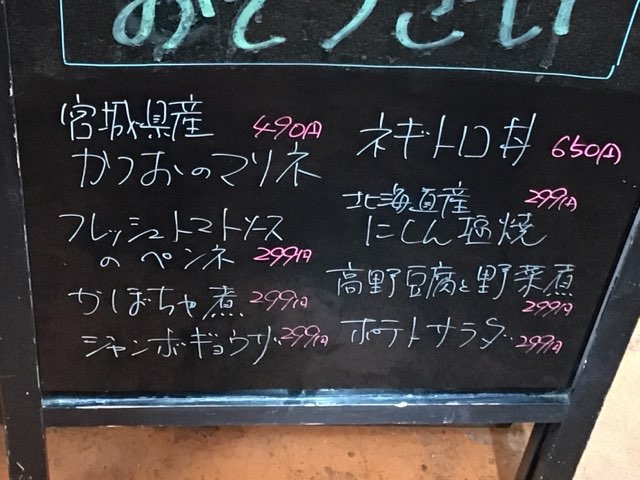 おそうざい
宮城県産
かつおのマリネ 490円
フレッシュトマトソース
のペンネ 299円
かぼちゃ煮 299円
ジャンボギョウザ 299円
ネギトロ丼 650円
北海道産 299円
にしん塩焼
高野豆腐と野菜煮
299円
ポテトサラダ 299円